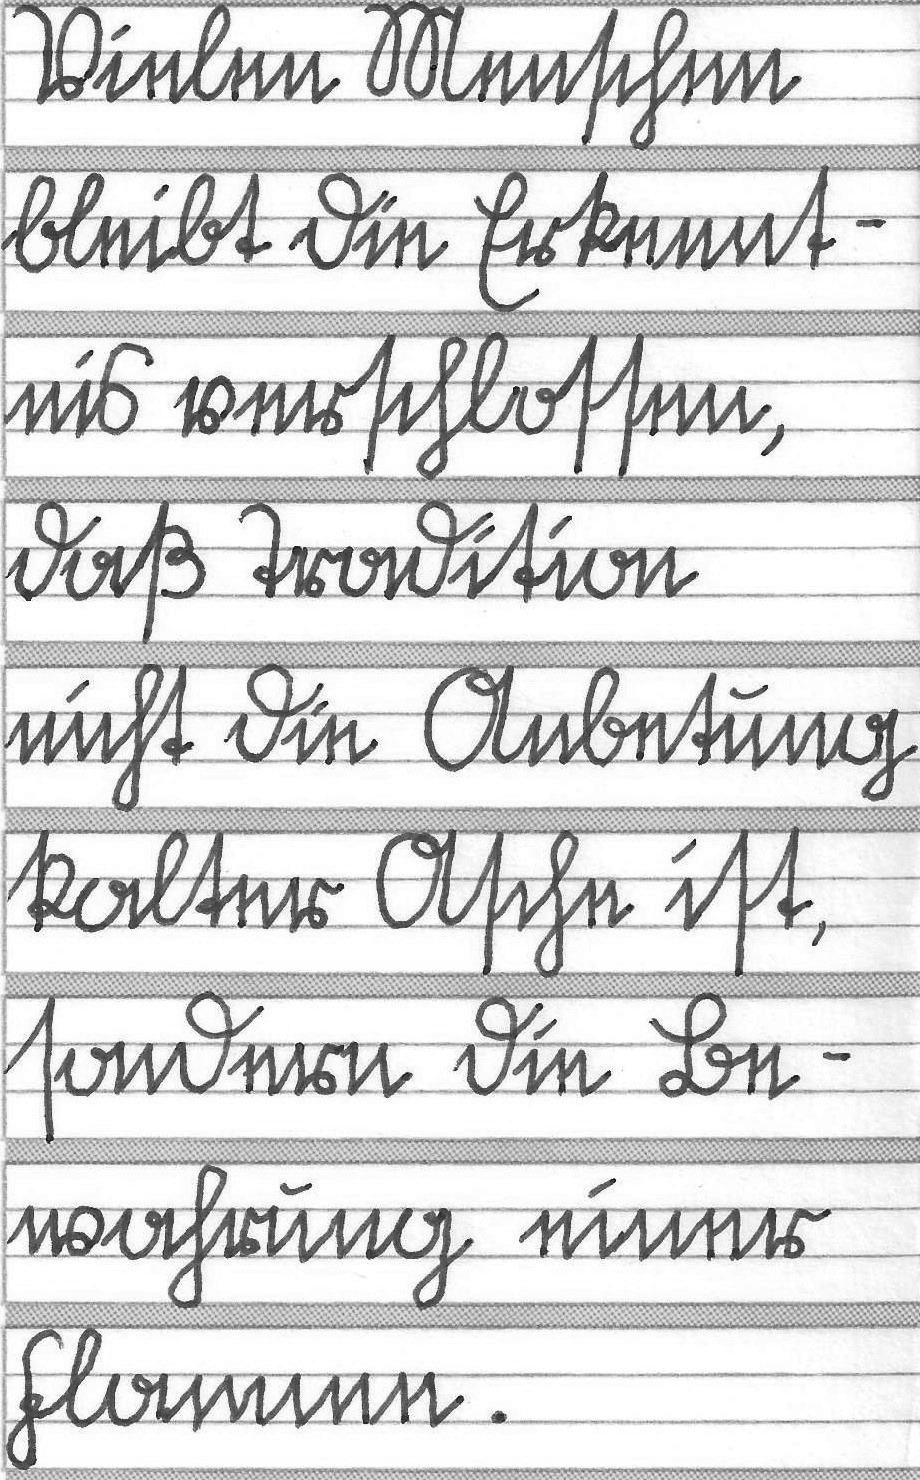 Vielen Menschen
bleibt die Erkennt-
nis verschlossen,
daß Tradition
nicht die Anbetung
kalter Asche ist,
sondern die Be-
wahrung einer
Flamme.